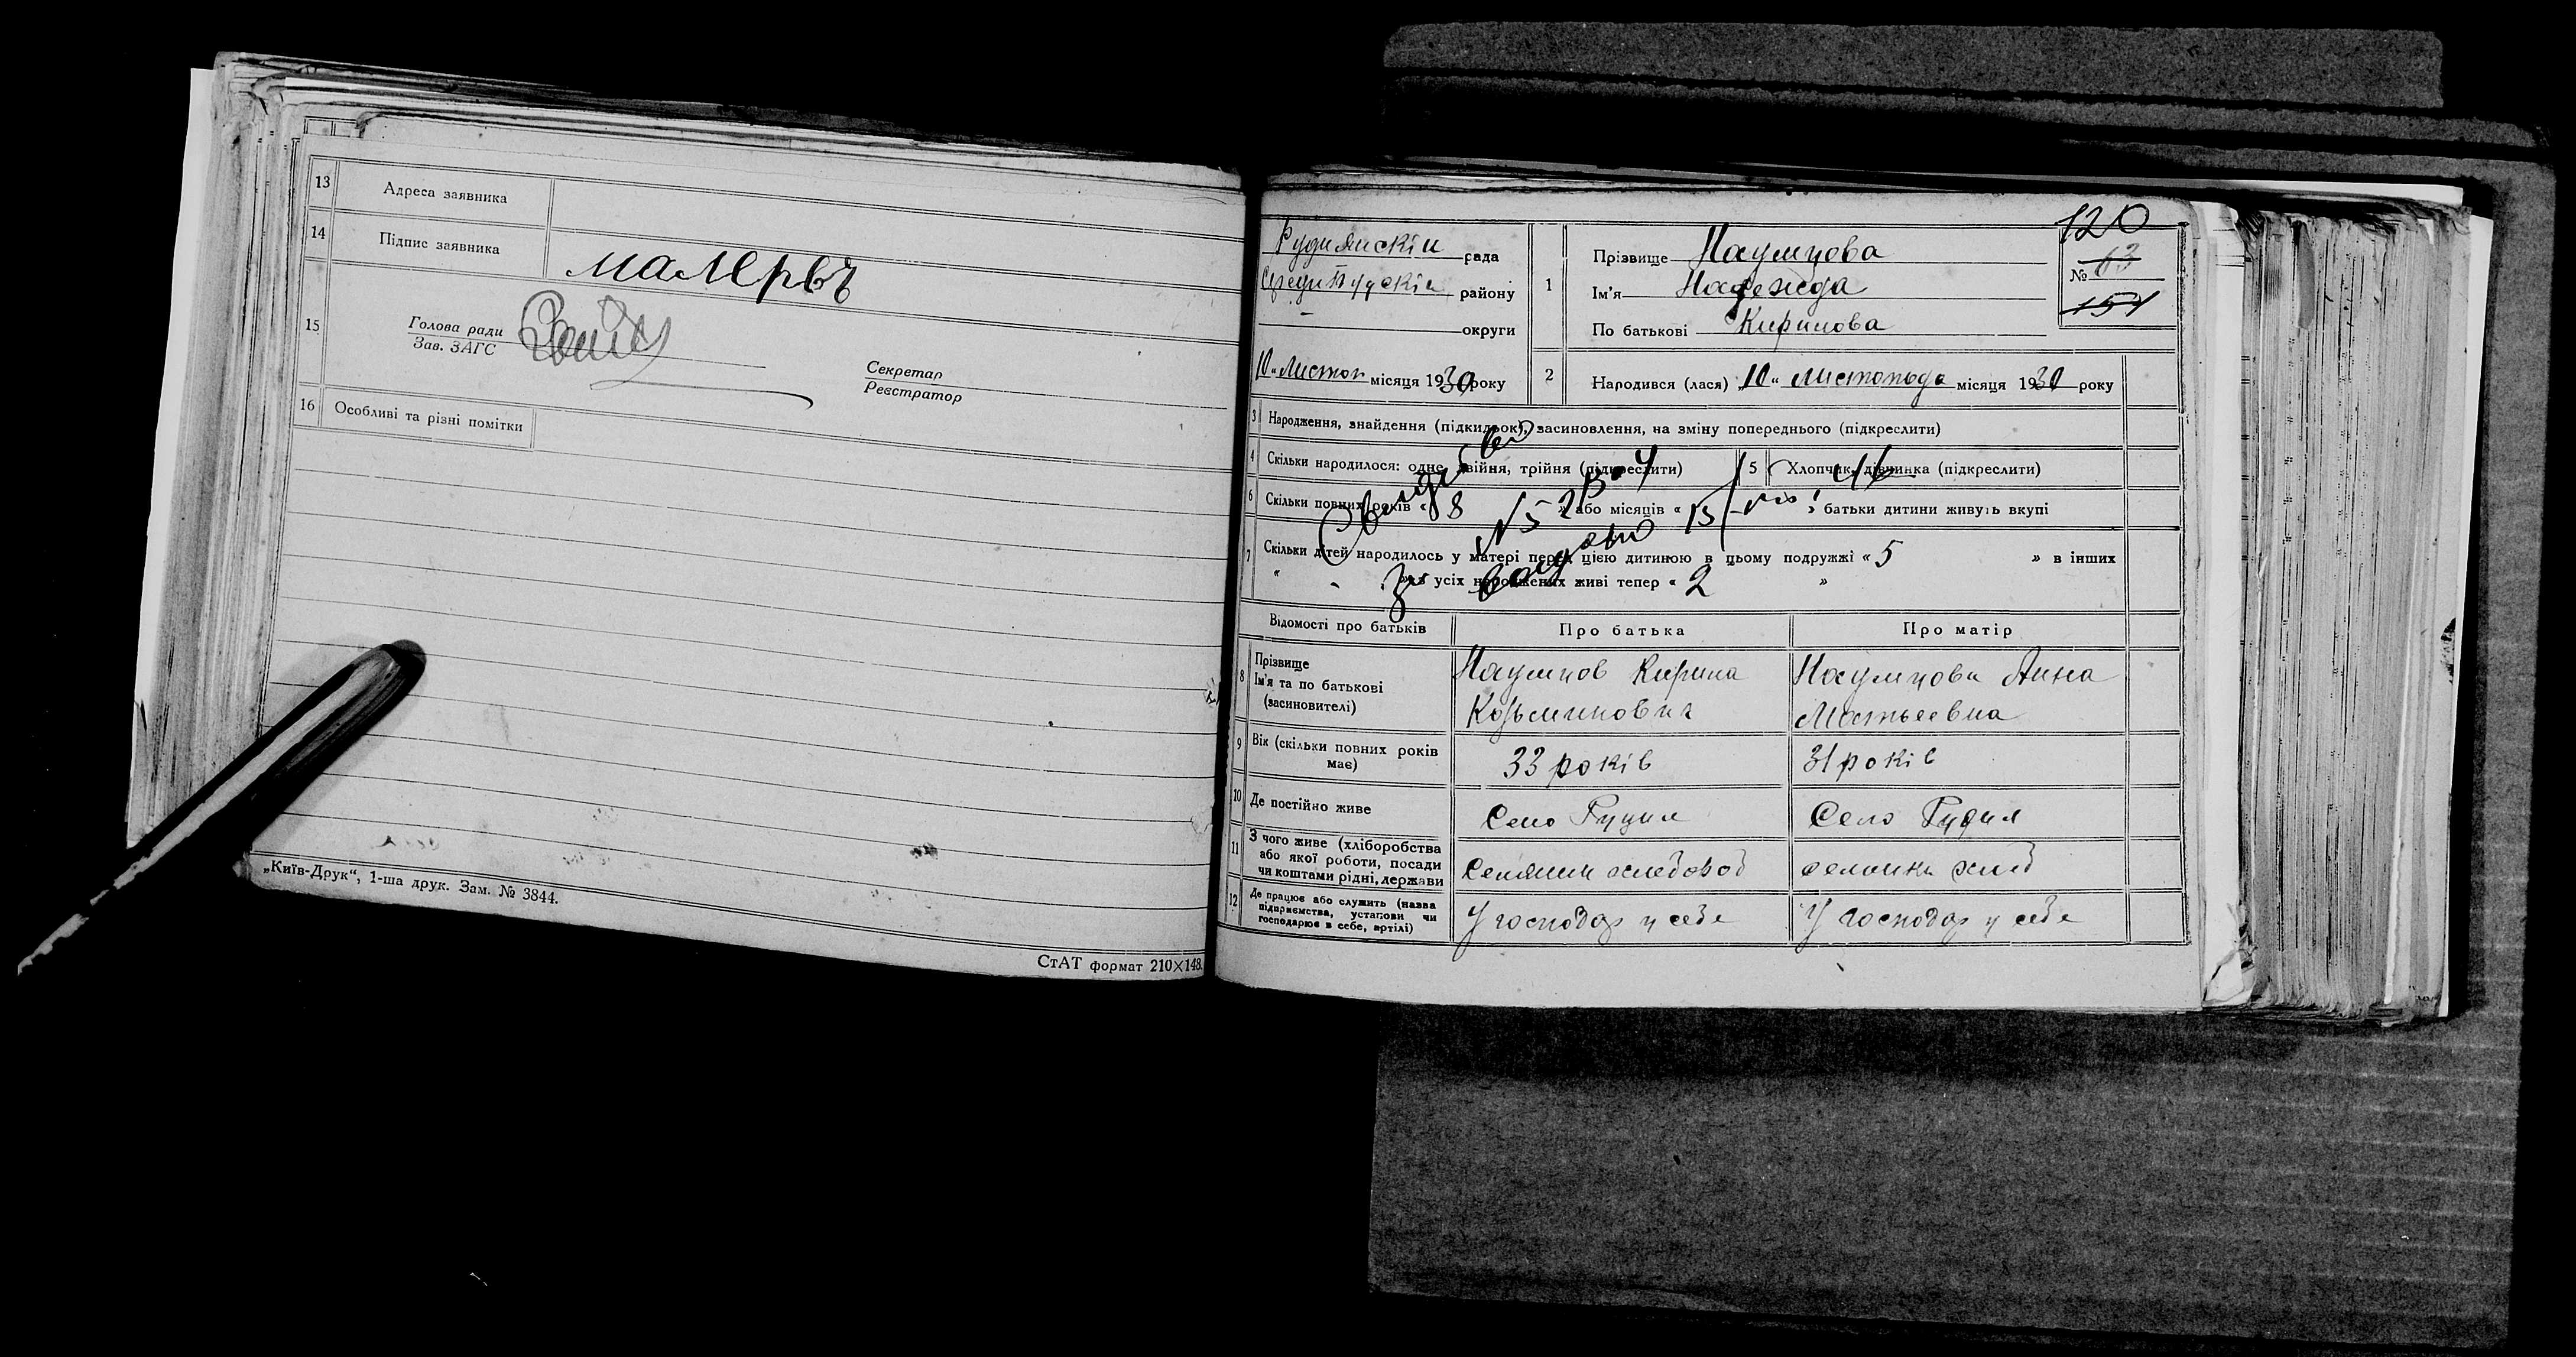 13 Адреса заявника
14 Підпис заявника
малеръ
15 Голова ради
Зав. ЗАГС
Секретар
Реєстратор
16 Особливі та різні помітки
„Київ-Друк“, 1-ша друк. Зам. № 3844.
СтАТ формат 210×148.
120
рада
району
округи
10 " Листоп місяця 1930 року
1 Прізвище Наумцова
Ім'я Надежда
По батькові Кирилова
№ 63
151
2 Народився (лася) 10 " листопада місяця 1930 року
3 Народження, знайдення (підкидьок), засиновлення, на зміну попереднього (підкреслити)
4 Скільки народилося: одне, двійня, трійня (підкреслити)
5 Хлопчик, дівчинка (підкреслити)
6 Скільки повних років « 8 » або місяців « » батьки дитини живуть вкупі
7 Скільки дітей народилось у матері перед цією дитиною в цьому подружжі « 5 » в інших
« » з усіх народжених живі тепер « 2 »
Відомості про батьків
Про батька
Про матір
8 Прізвище
Ім'я та по батькові
(засиновителі)
Наумцов Кирила
Козьминович
Наумцова Анна
Матьеевна
9 Вік (скільки повних років має)
33 років
31 років
10 Де постійно живе
Село Рудня
Село Рудня
11 З чого живе (хліборобства
або якої роботи, посади
чи коштами рідні, держави
Селянин хлебороб
селянка хлеб
12 Де працює або служить (назва
підприємства, установи чи
господарює в себе, артілі)
У господар у себе
У господар у себе